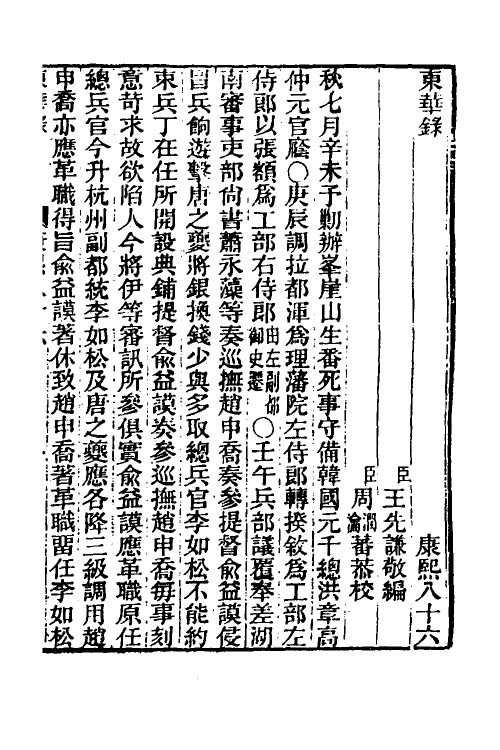 東華錄
康熙八十六
臣王先謙敬編
臣周潤蕃 周瀹蕃恭校
秋七月辛未予勦辦峯崖山生番死事守備韓國元千總洪章高
仲元官廕〇庚辰調拉都渾爲理藩院左侍郎轉揆敘爲工部左
侍郎以張額爲工部右侍郎由左副都御史遷〇壬午兵部議覆奉差湖
南審事吏部尚書蕭永藻等奏巡撫趙申喬奏參提督俞益謨侵
冒兵餉遊擊唐之夔將銀換錢少與多取總兵官李如松不能約
束兵丁在任所開設典鋪提督俞益謨奏參巡撫趙申喬每事刻
意苛求故欲陷人今將伊等審訊所參俱實俞益謨應革職原任
總兵官今升杭州副都統李如松及唐之夔應各降三級調用趙
申喬亦應革職得旨俞益謨著休致趙申喬著革職畱任李如松